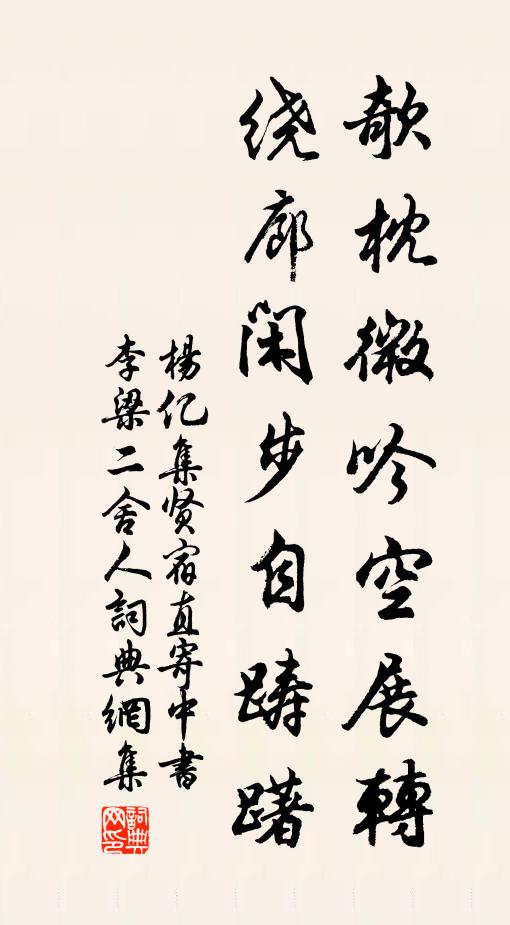 欹枕微吟空展轉
绕廊闲步自踌躇
楊亿集贤宿直寄中書
李梁二舍人詞典網集
詞典
网印